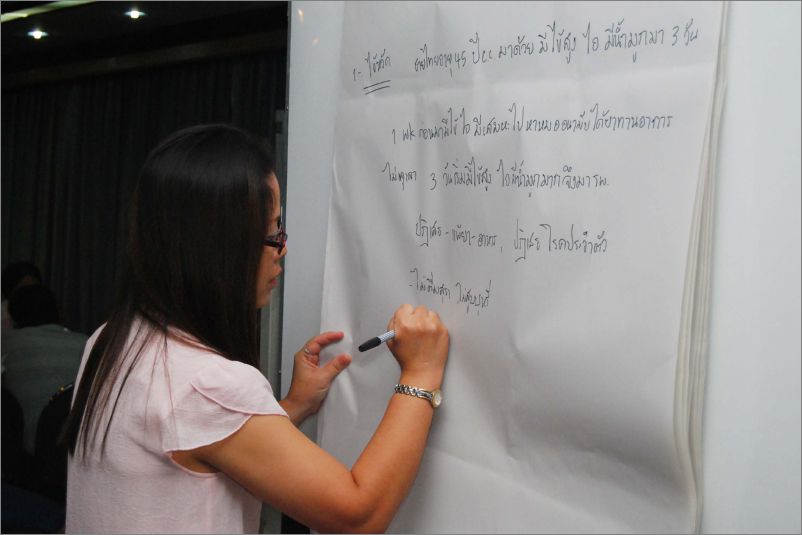 1. ไข้หวัด ชายไทยอายุ 45 ปี cc มาด้วย มีไข้สูง ไอ มีน้ำมูกมา 3 วัน
1 wk ก่อนมามีไข้ ไอ มีเสมหะไป หาหมออนามัย ได้ยาทานอาการ
ไม่ทุเลา 3 วันเริ่มมีไข้สูง ไอมีน้ำมูกมาก จึงมา รพ.
ปฏิเสธ - แพ้ยา - อาหาร, ปฏิเสธ โรคประจำตัว
- ไม่ดื่มสุรา ไม่สูบบุหรี่